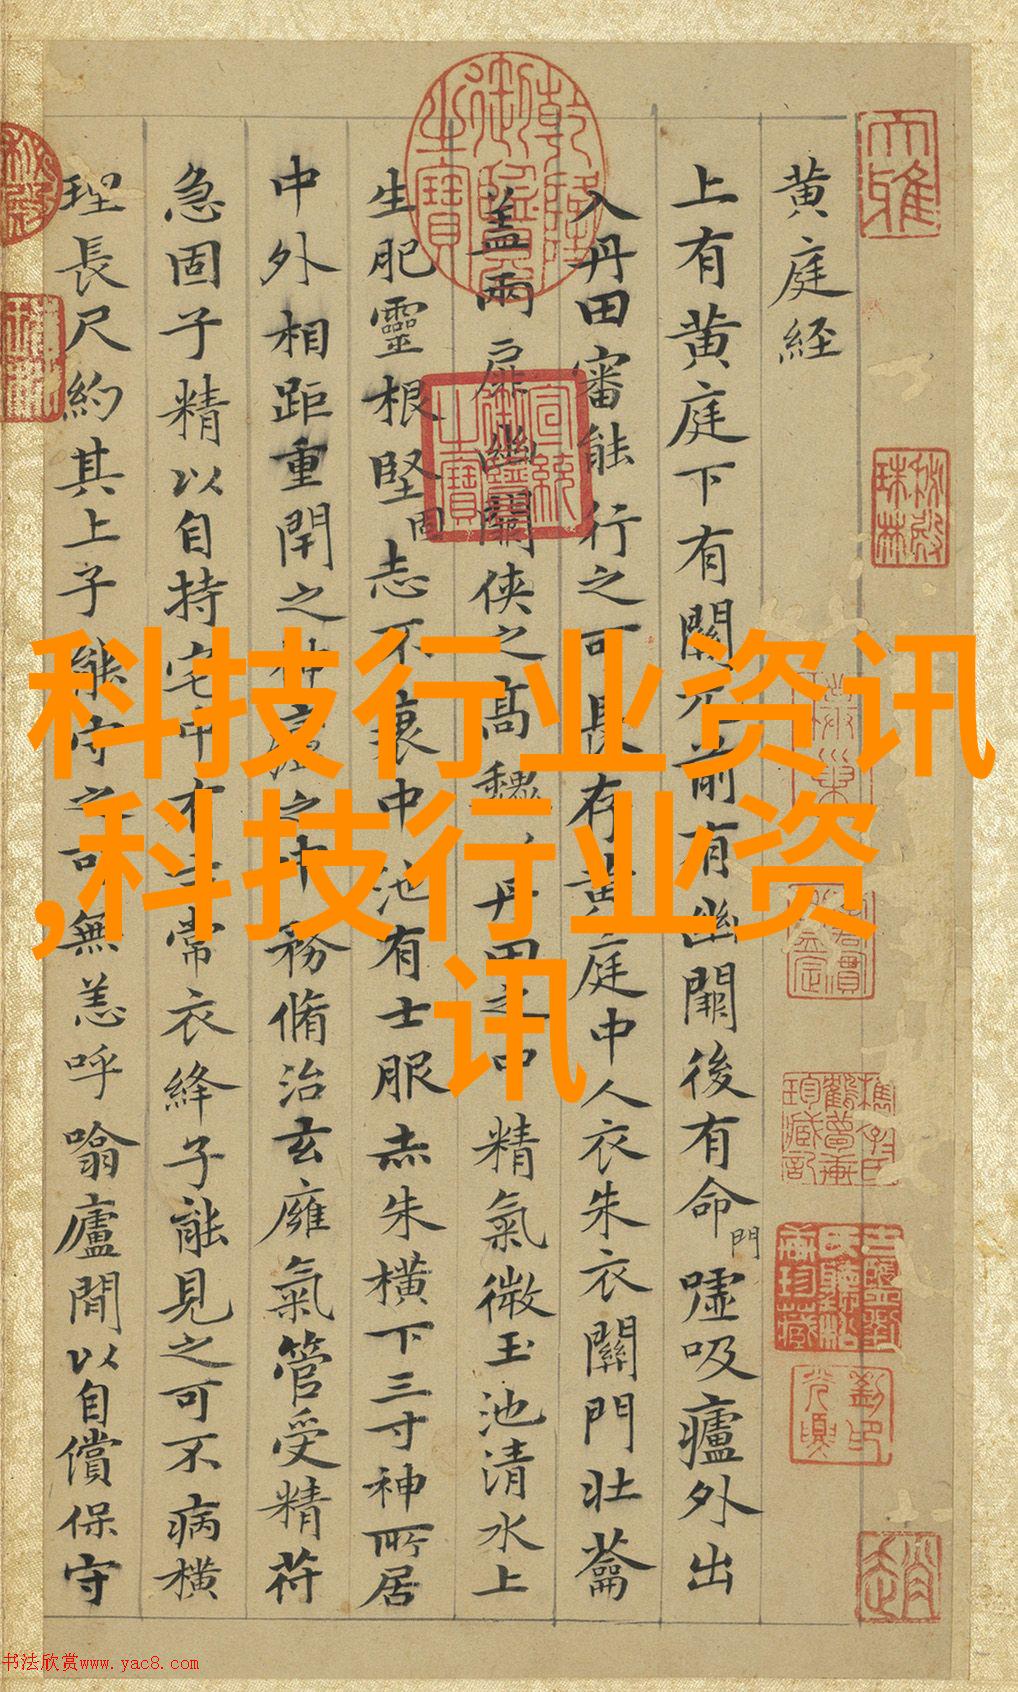 黄庭経
上有黄庭下有關元前有幽闕後有命門嘘吸廬外出
入丹田審能行之可長存黄庭中人衣朱衣關門壮蘥
盖兩扉幽闕侠之高巍丹田之中精氣微玉池清水上
生肥靈根堅固志不衰中池有士服赤朱横下三寸神所居
中外相距重閇之神廬之中務脩治玄廱氣管受精苻
急固子精以自持宅中有士常衣絳子能見之可不病横
理長尺約其上子能守之可無恙呼噏廬間以自償保守
科技行业资讯
,科技行业资
讯
大雅
乾隆御覽之寶
宣統御覽之寶
书法欣赏www.yac8.com